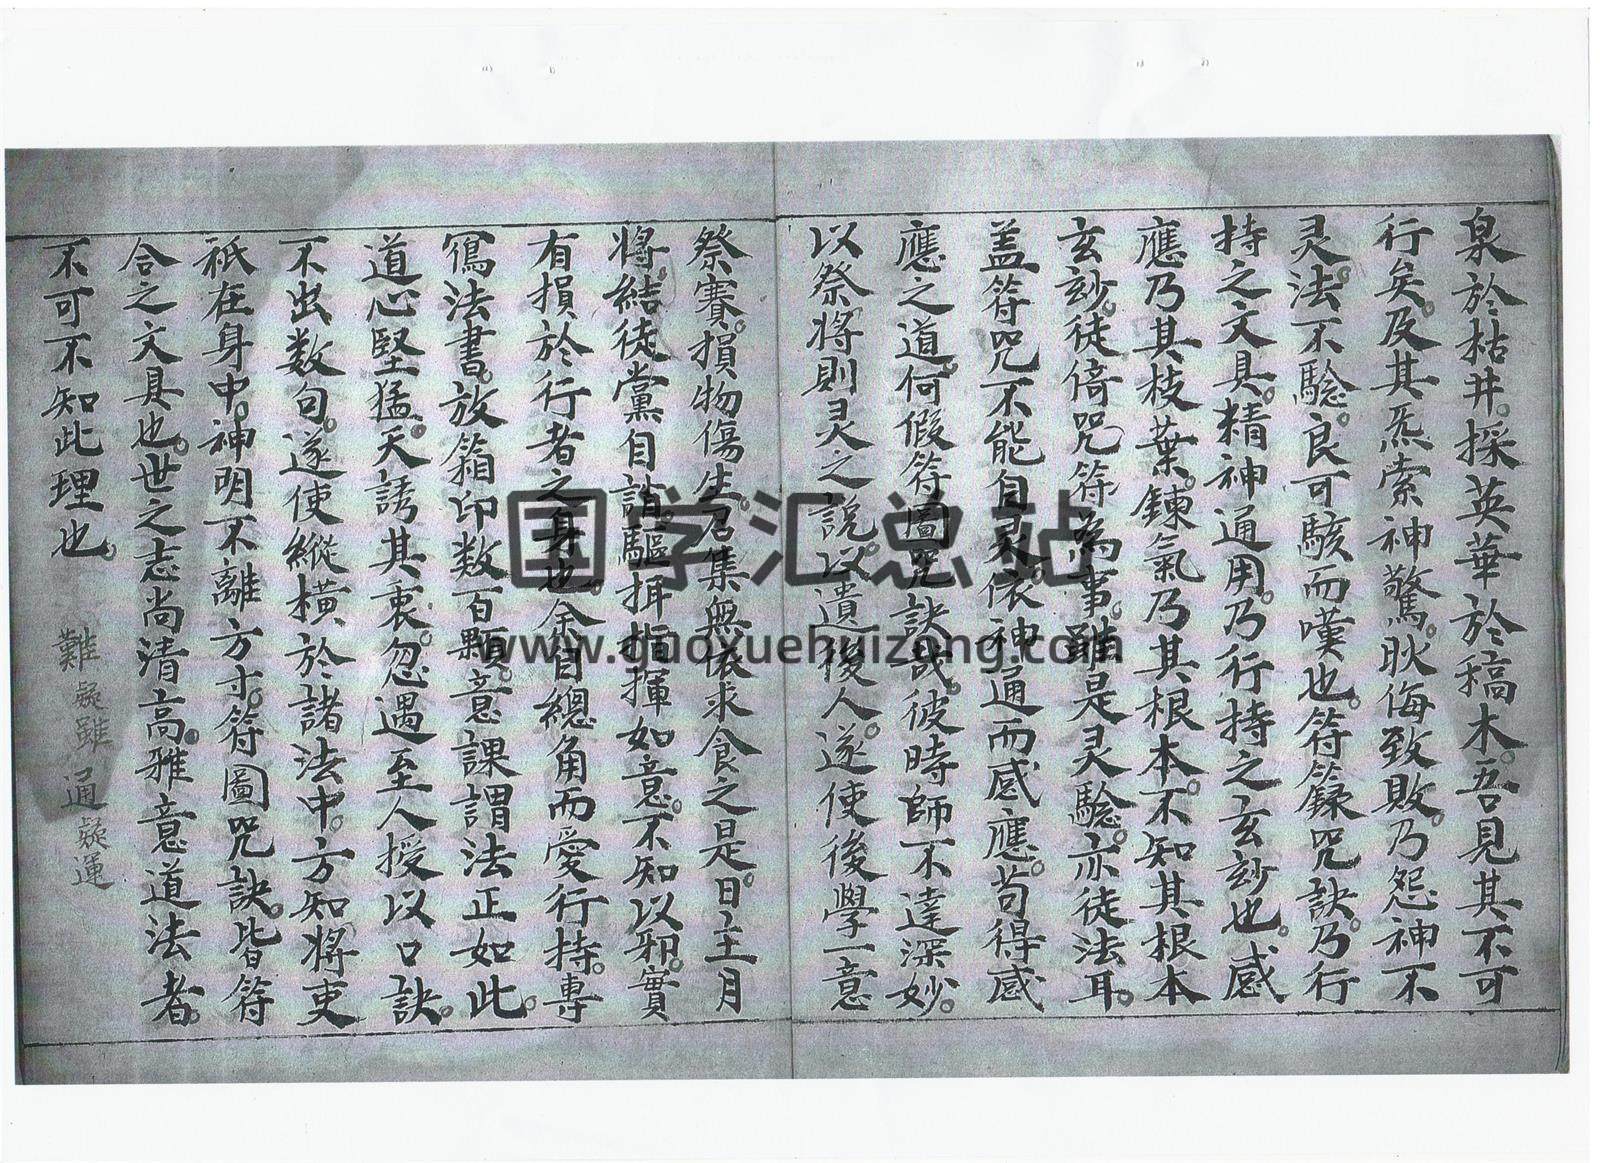 泉於枯井。採英華於稿木。吾見其不可
行矣。及其炁索神驚。耿侮致敗。乃怨神不
灵。法不驗。良可駭而嘆也。符籙咒訣乃行
持之文具。精神通用。乃行持之玄玅也。感
應乃其枝葉。鍊氣乃其根本。不知其根本
玄玅。徒倚咒符為事。雖是灵驗。亦徒法耳。
盖符咒不能自灵。依神通而感應。苟得感
應之道。何假符圖咒訣哉。彼時師不達深妙。
以祭将則灵之說。以遺後人。遂使後學一意
祭賽。損物傷生。召集無依求食之是。日主月
将。結徒黨。自誚驅揖指揮如意。不知以邪。實
有損於行者之身也。余自總角而愛行持。專
寫法書。放箱印数百顆。意課謂法正如此。
道心堅猛。天誘其衷。忽遇至人授以口訣。
不出数句。遂使縱横於諸法中。方知将吏
祇在身中。神明不離方寸。符圖咒訣。皆符
合之文具也。世之志尚清高。雅意道法者。
不可不知此理也。
難凝雖通凝運
国学汇总站
www.guoxuehuizong.com